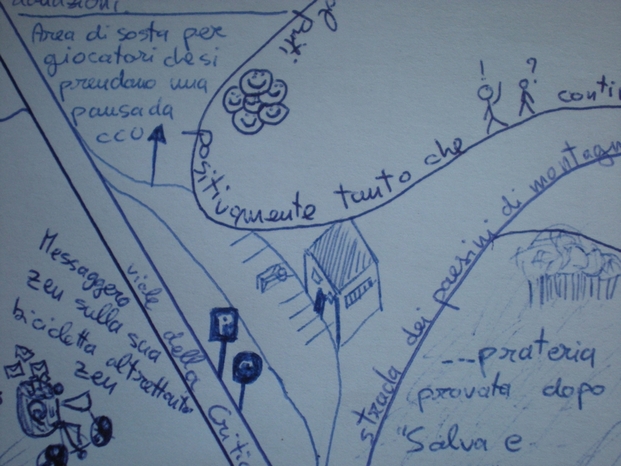 donazioni.
Area di sosta per
giocatori che si
prendono una
pausa da
CCU
positivamente tanto che
!
?
conti
Messaggero
zen sulla sua
bicicletta altrettanto
zen
viale della Critic
P
strada dei paesini di montagn
---prateria
provata dopo
"Salva e